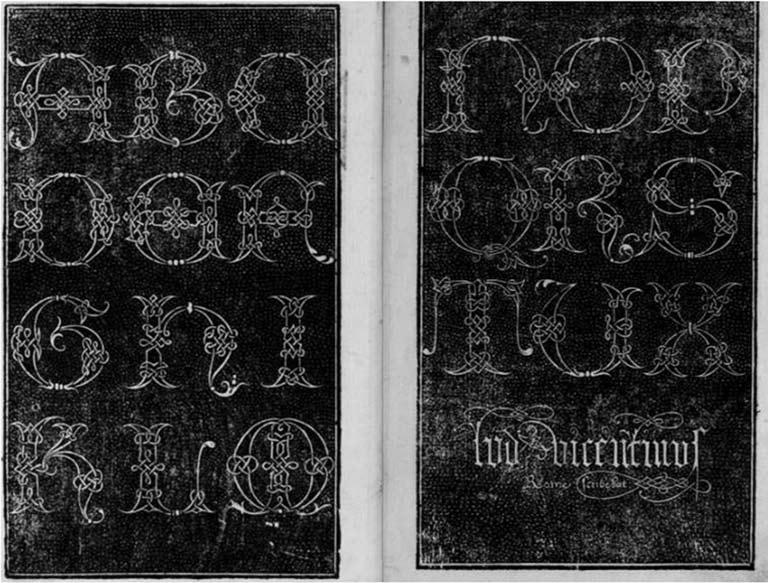 A B C
D E F
G H I
K L M
N O P
Q R S
T U X
Lud Vicentinus
Rome scribebat